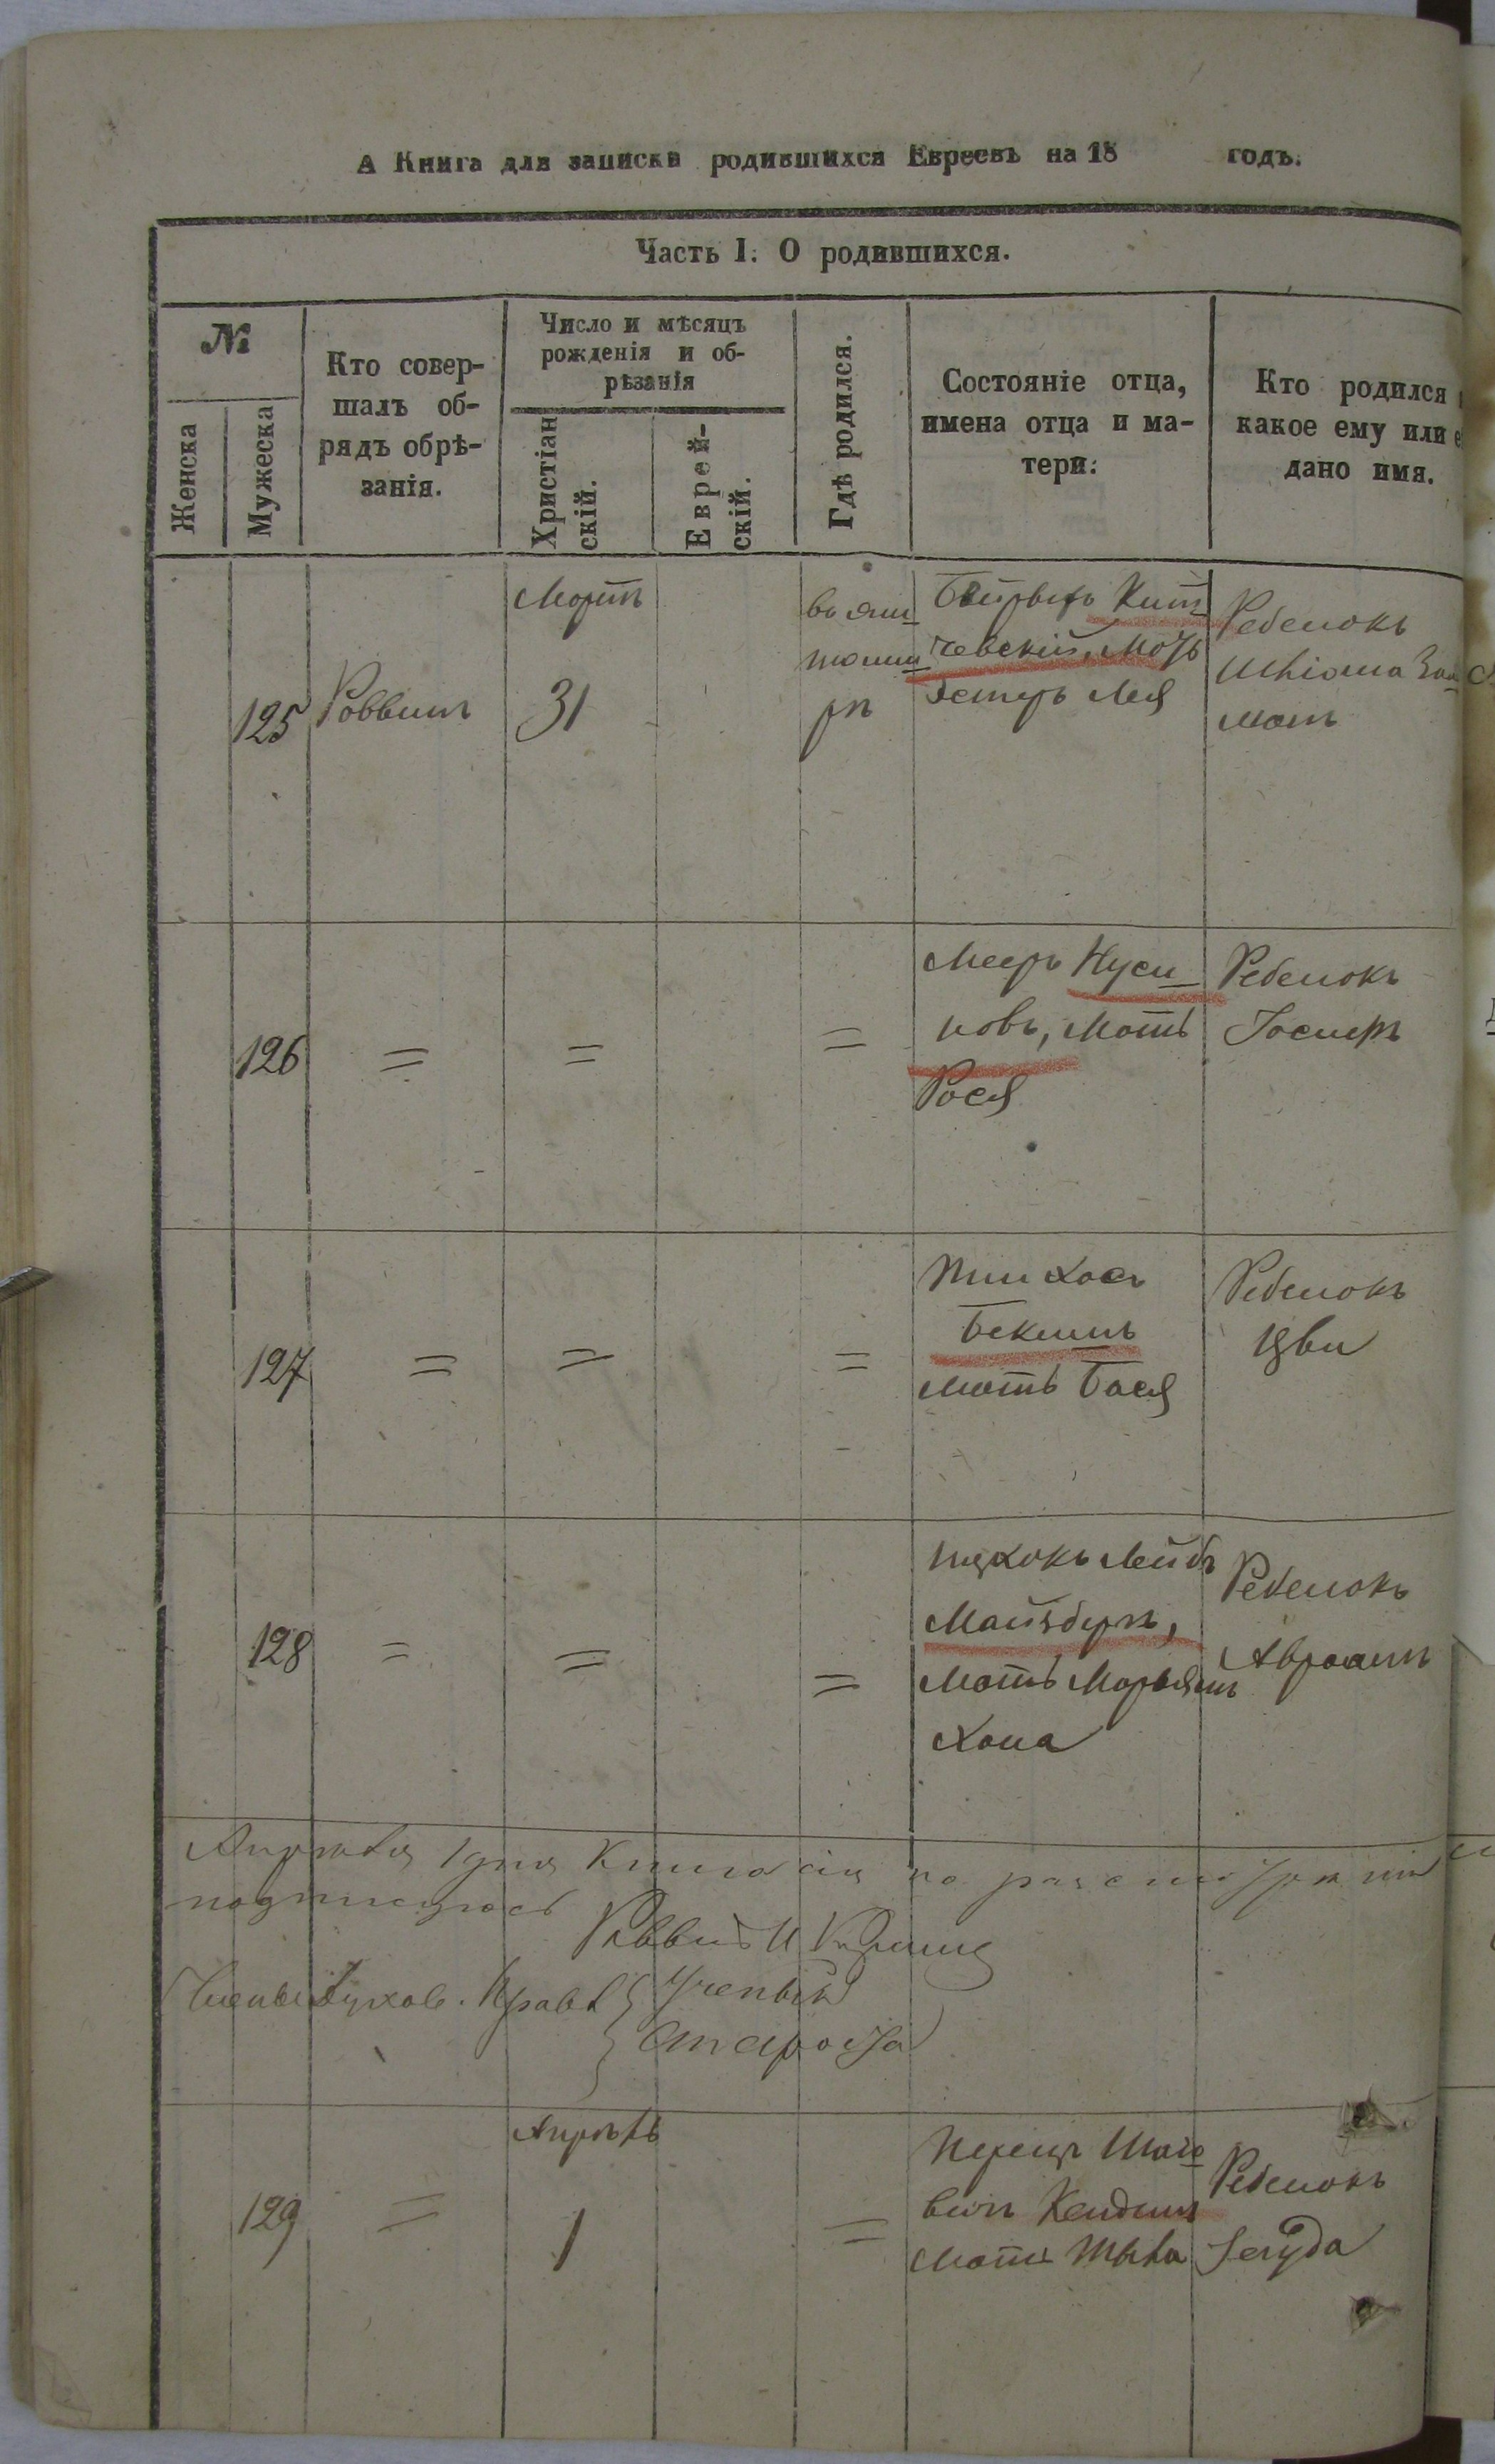 А Книга для записки родившихся Евреевъ на 18 годъ.
Часть I. О родившихся.
№
Женска
Мужеска
Кто совер-
шалъ об-
рядъ обрѣ-
занія.
Число и мѣсяцъ
рожденія и об-
рѣзанія
Христіан
скій.
Еврей-
скій.
Гдѣ родился.
Состояніе отца,
имена отца и ма-
тери.
Кто родился
какое ему или е
дано имя.
125
Раввинъ
Мартъ
31
Кит
чевскій, Мать
Эстеръ Лея
Ребенокъ
Шліома Зал
манъ
126
=
=
=
Меер Нуси
новъ, Мать
Рося
Ребенокъ
Іосифъ
127
=
=
=
Пинхосъ
Бекинъ
Мать Бася
Ребенокъ
Цви
128
=
=
=
Ицхокъ Лейбъ
Мать Марьямъ
Хана
Ребенокъ
Авраамъ
Апрѣля 1 дня Книга сія по разсмотреніи
Раввинъ И
Члены Духов. Правл { Ученый
Староста
129
=
Апрѣль
1
=
Перецъ
Мать
Ребенокъ
Іегуда